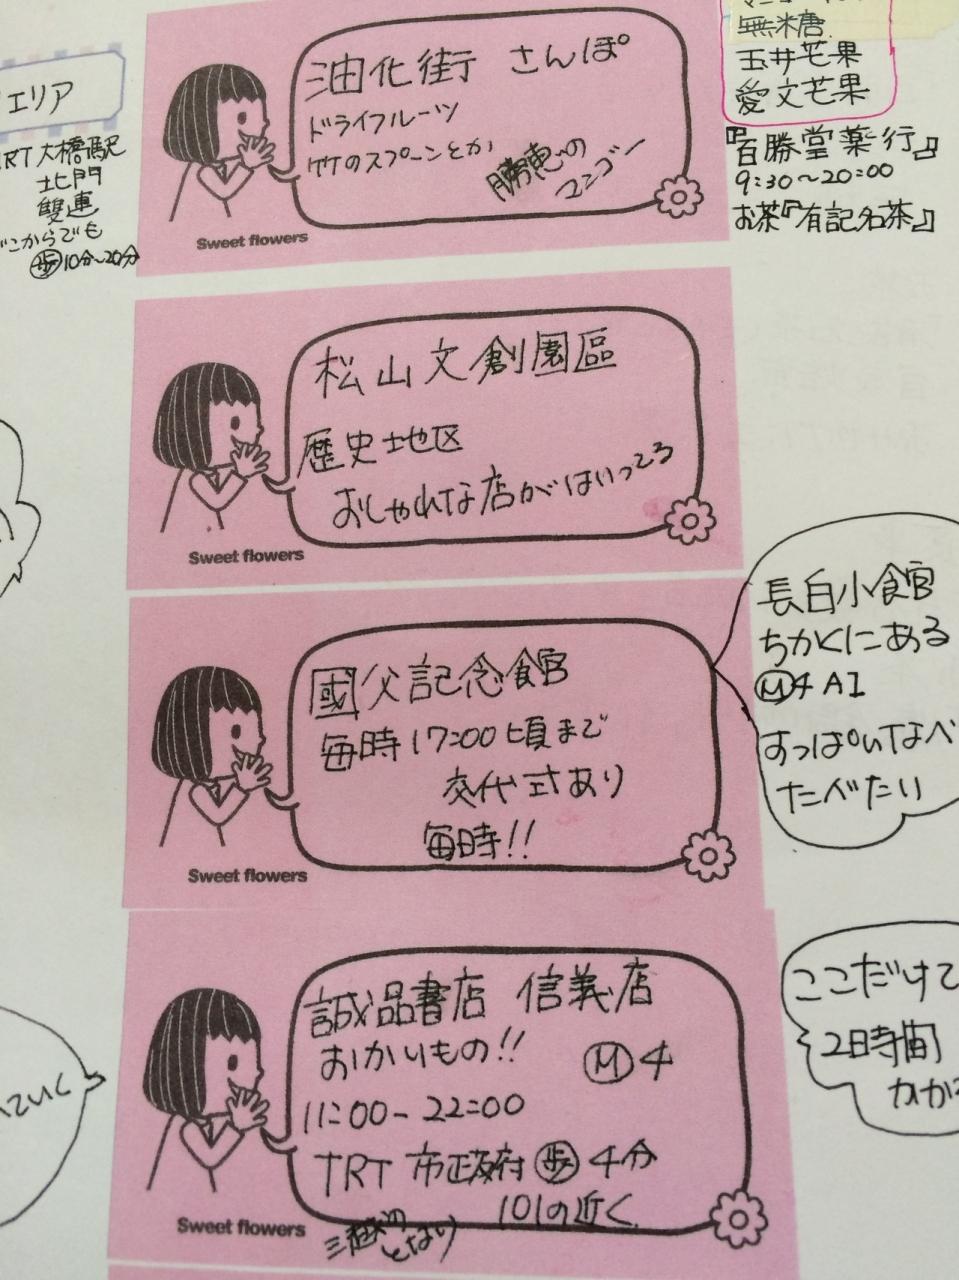 エリア
大橋駅
北門
雙連
どこからでも
歩10分〜20分
油化街 さんぽ
ドライフルーツ
竹のスプーンとか
勝恵の
マンゴー
Sweet flowers
無糖
玉井芒果
愛文芒果
『百勝堂薬行』
9:30〜20:00
お茶『有記名茶』
松山文創園區
歴史地区
おしゃれな店がはいってる
Sweet flowers
國父記念館
毎時17:00頃まで
交代式あり
毎時!!
Sweet flowers
長白小館
ちかくにある
M4 A1
すっぱいなべ
たべたい
誠品書店 信義店
おかいもの!!
M4
11:00-22:00
TRT 市政府 歩4分
101の近く
三越の
となり
Sweet flowers
ここだけで
2時間
かかる